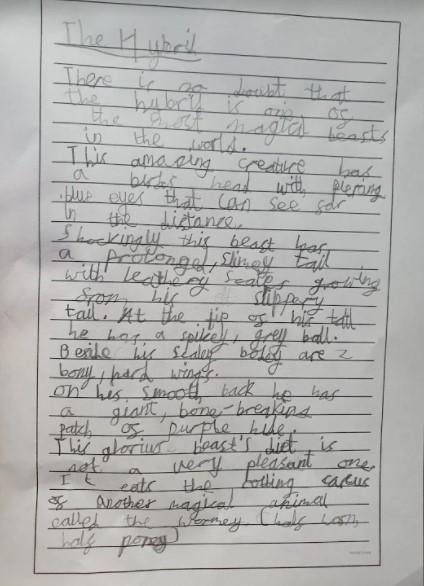 The Hybril
There is no doubt that
the hybril is one of
the most magical beasts
in the world.
This amazing creature has
a birds head with piercing
blue eyes that can see far
in the distance.
Shockingly this beast has
a prolonged, slimey tail
with leathery scales growing
from his slippery
tail. At the tip of his tail
he has a spikey, grey ball.
Beside his scaley body are 2
bony, hard wings.
On his smooth back he has
a giant, bone-breaking
patch of purple hide.
This glorius beast's diet is
not a very pleasant one,
It eats the rotting carcus
of another magical animal
called the wormey (half worm,
half poney)